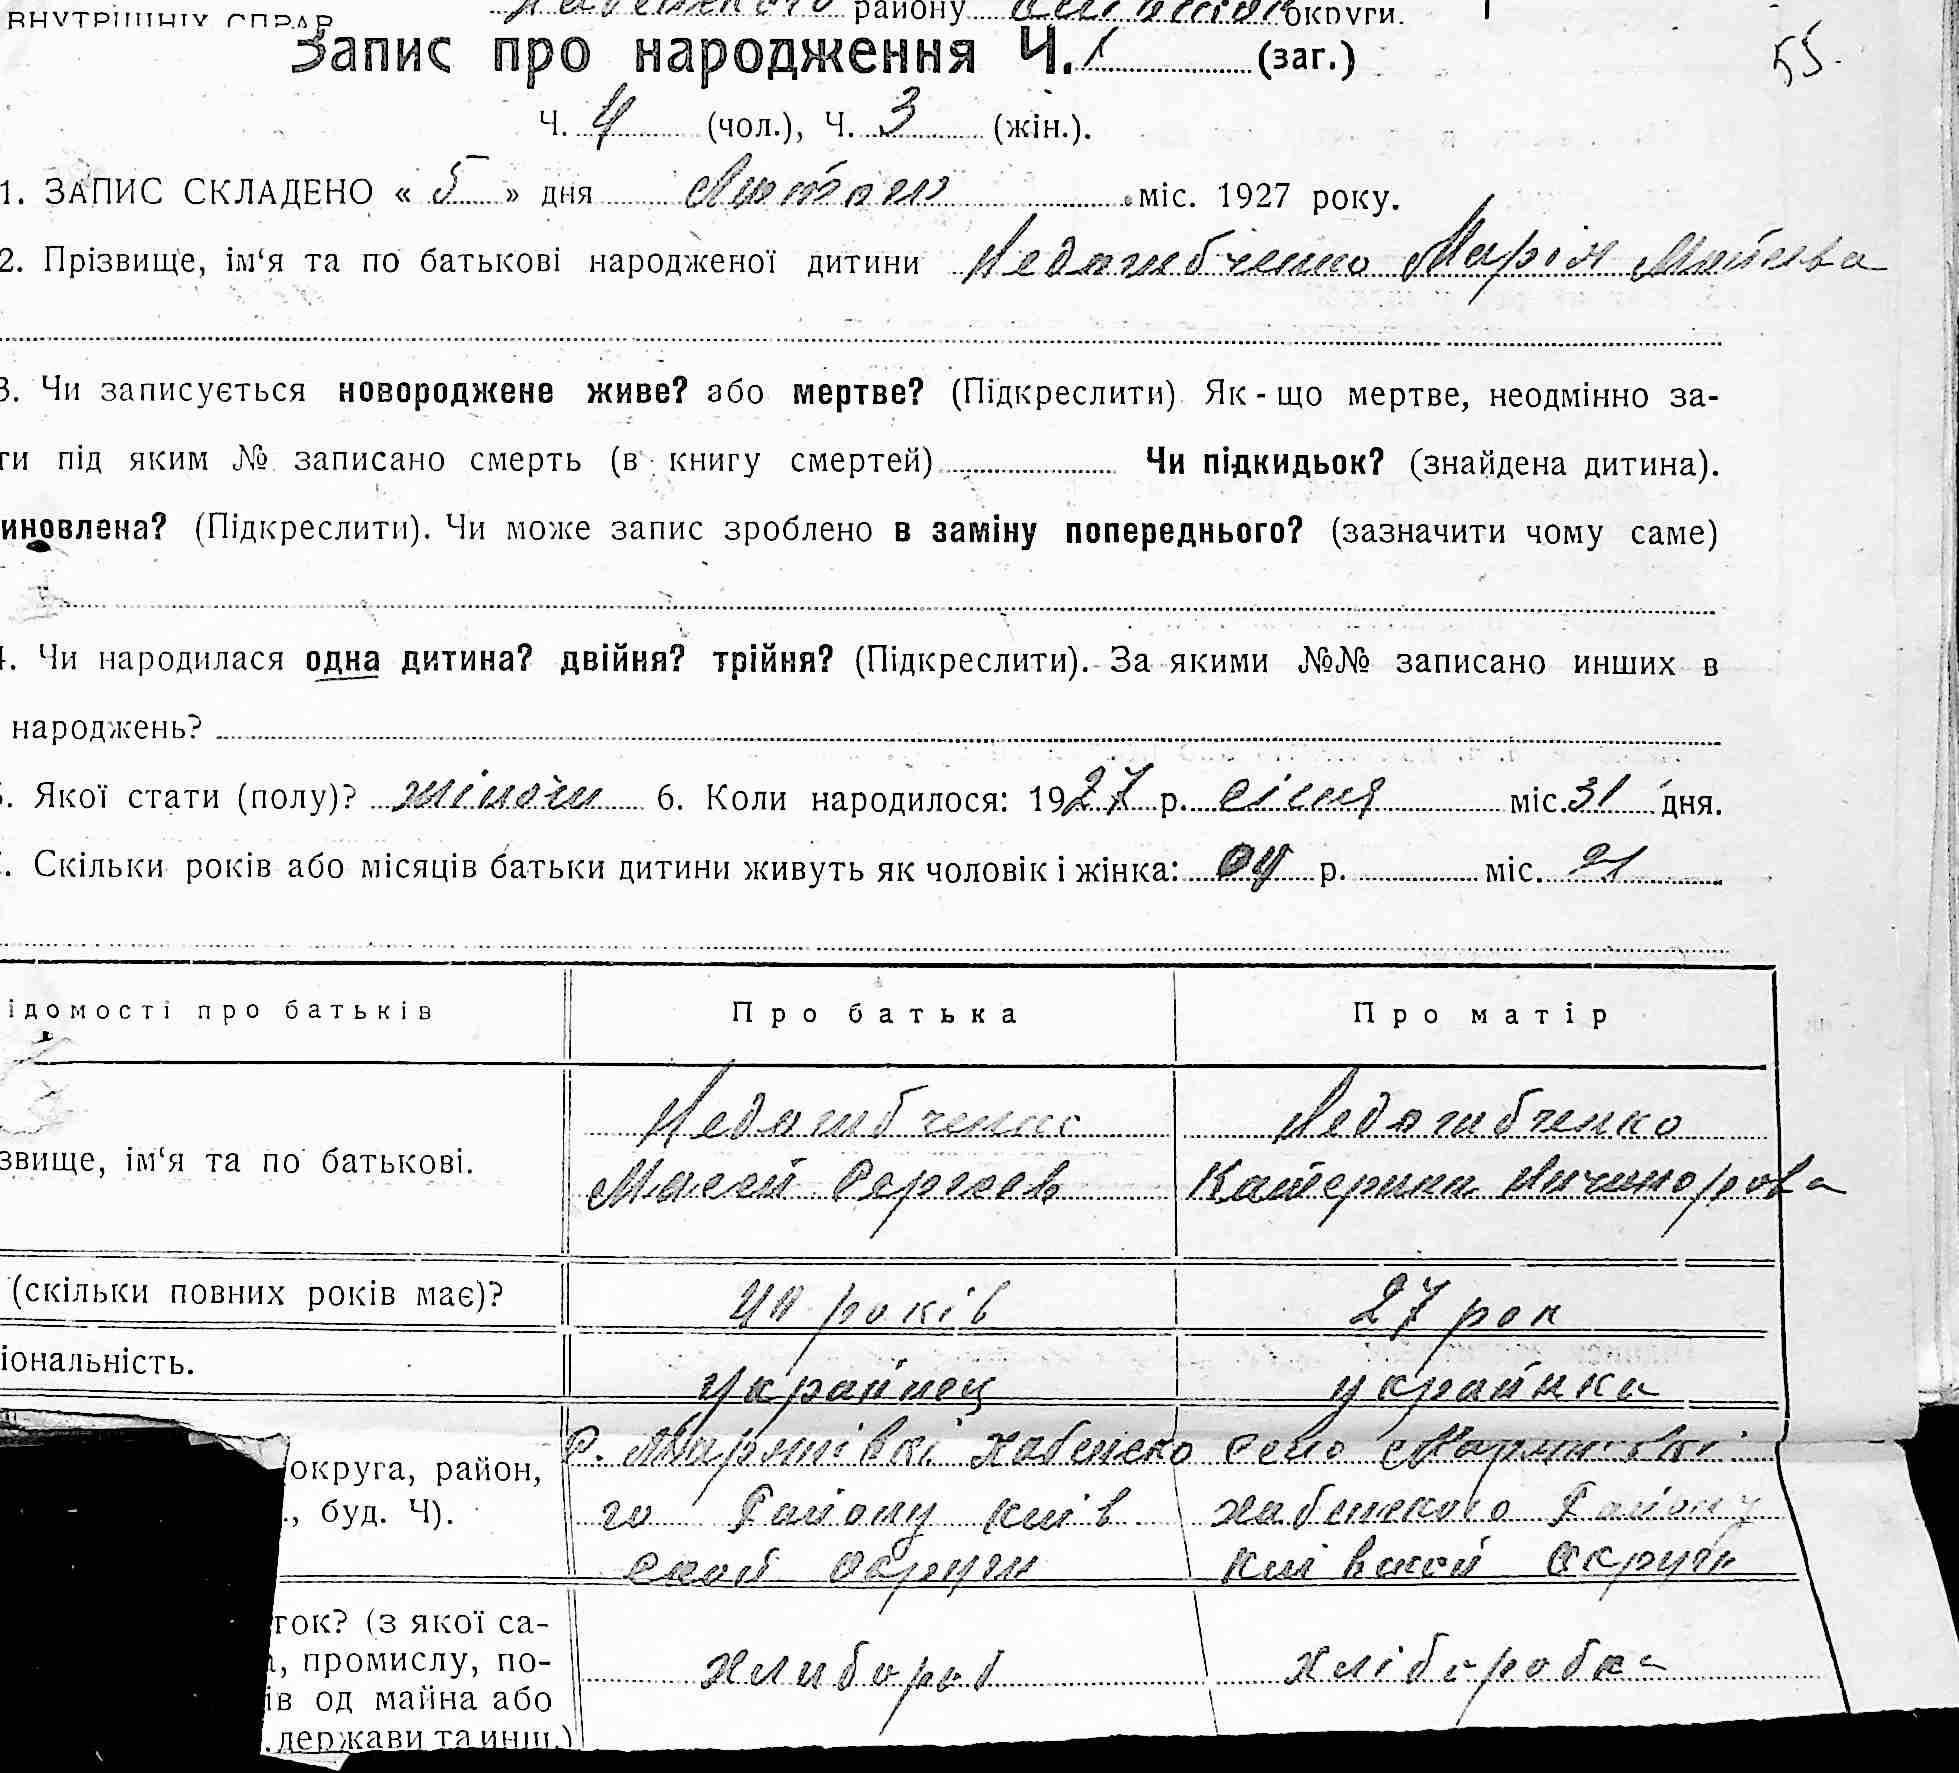 ВНУТРІШНІХ СПРАВ району округи.
Запис про народження Ч. (заг.)
55.
Ч. 4 (чол.), Ч. 3 (жін.).
1. ЗАПИС СКЛАДЕНО « 5 » дня міс. 1927 року.
2. Прізвище, ім‘я та по батькові народженої дитини Недогибченко Марія Мойсієва
3. Чи записується новороджене живе? або мертве? (Підкреслити) Як-що мертве, неодмінно за-
ти під яким № записано смерть (в книгу смертей) Чи підкидьок? (знайдена дитина).
иновлена? (Підкреслити). Чи може запис зроблено в заміну попереднього? (зазначити чому саме)
4. Чи народилася одна дитина? двійня? трійня? (Підкреслити). За якими №№ записано инших в
народжень?
5. Якої стати (полу)? жіночи 6. Коли народилося: 1927 р. січня міс. 31 дня.
Скільки років або місяців батьки дитини живуть як чоловік і жінка: р. міс.
ідомості про батьків Про батька Про матір
Недогибченко Недогибченко
звище, ім‘я та по батькові.
Масей Сергеев Катерина
(скільки повних років має)? років 27 рок
іональність.
украйнец украйнка
С. Мартинівкі Хабенско Село Мартинівкі
округа, район,
го Району Киів Хабенского Району
., буд. Ч).
ской Округи Киівской Округи
ток? (з якої са-
, промислу, по-
хлибороб хліборобка
ів од майна або
держави та инш.)